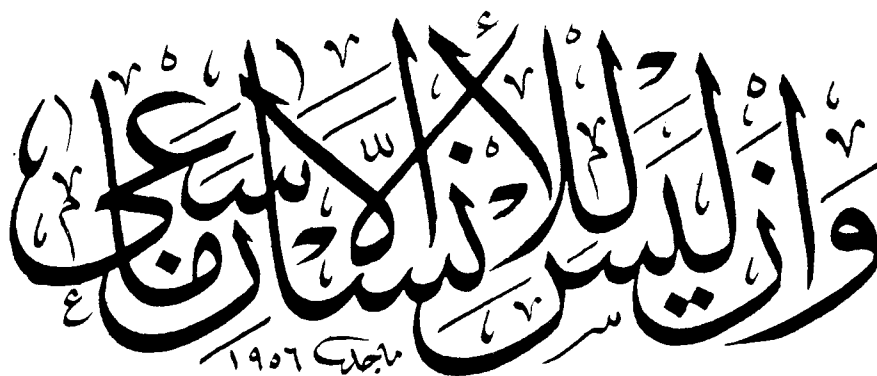 وَأَنْ لَيْسَ لِلْإِنْسَانِ إِلَّا مَا سَعَى
ماجد ١٩٥٦